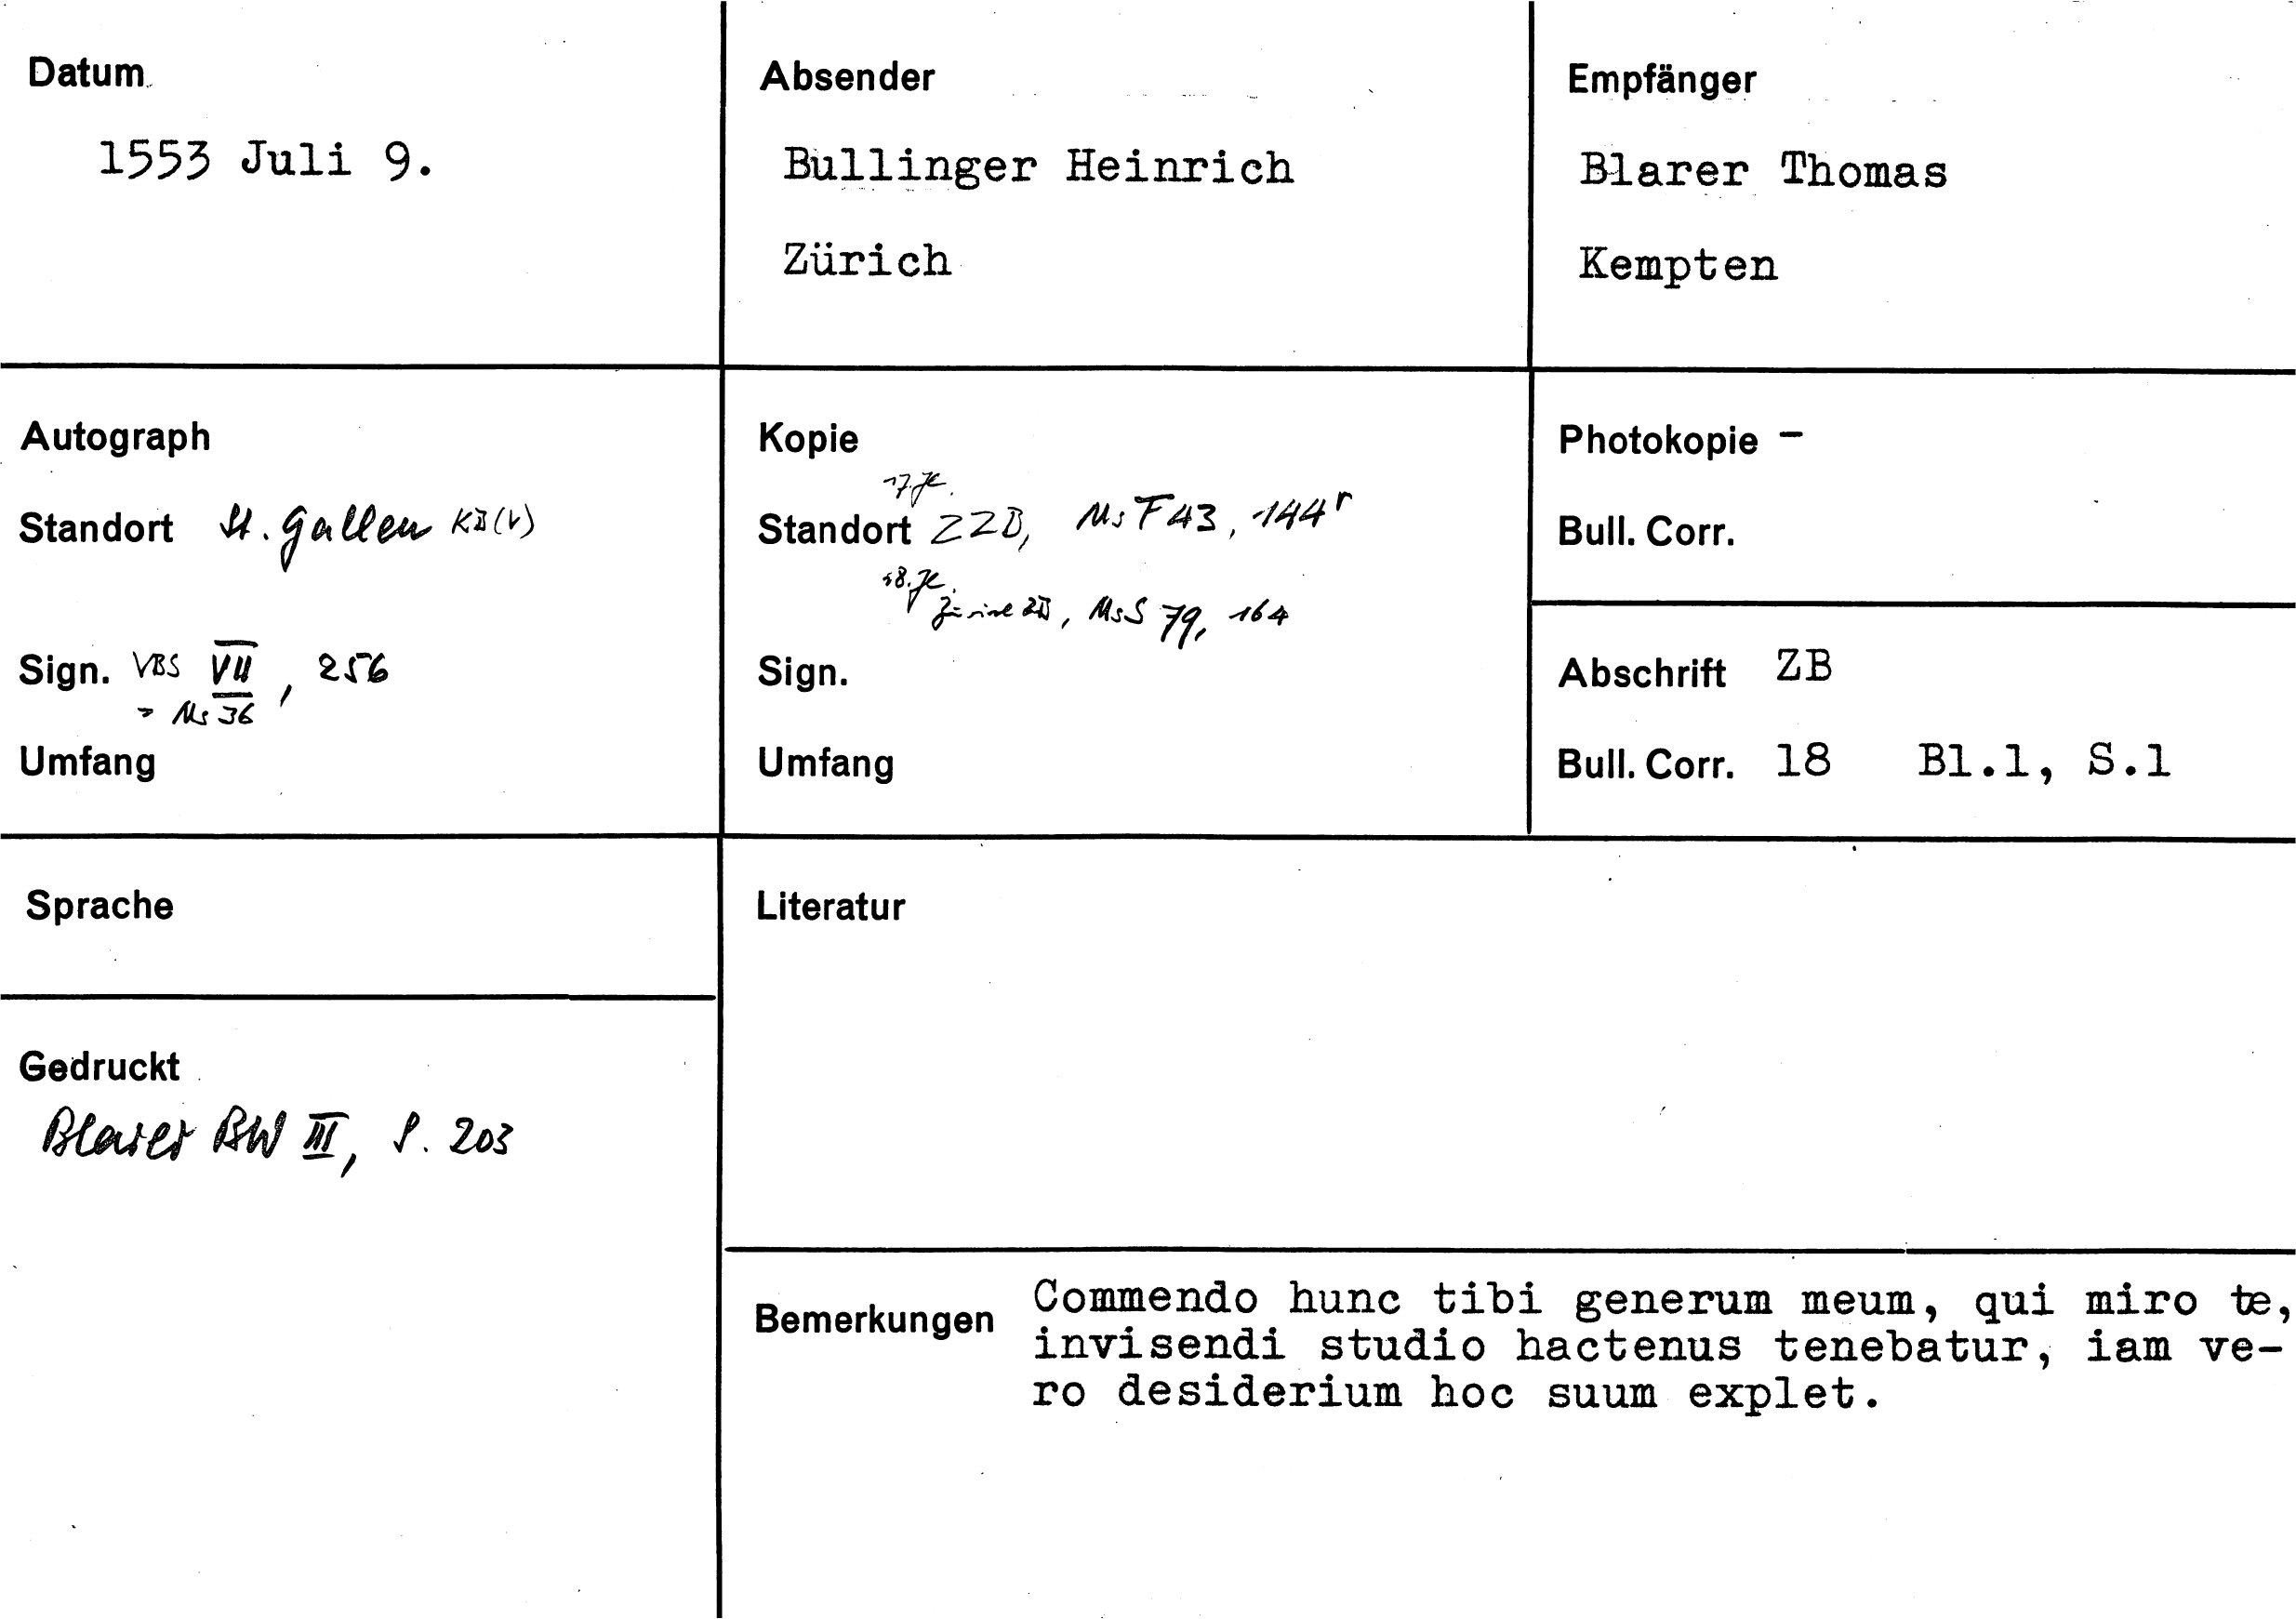 Datum
1553 Juli 9.
Absender
Bullinger Heinrich
Zürich
Empfänger
Blarer Thomas
Kempten
Autograph
Standort St. Gallen KB(V)
Sign. VBS VII, 256
= Ms 36
Umfang
Kopie
17. Jh.
Standort ZZB, Ms F 43, 144r
18. Jh.
Zürich ZB, Ms S 79, 164
Sign.
Umfang
Photokopie -
Bull. Corr.
Abschrift ZB
Bull. Corr. 18 Bl.1, S.1
Sprache
Literatur
Gedruckt
Blarer BW III, S. 203
Bemerkungen Commendo hunc tibi generum meum, qui miro te,
invisendi studio hactenus tenebatur, iam ve-
ro desiderium hoc suum explet.